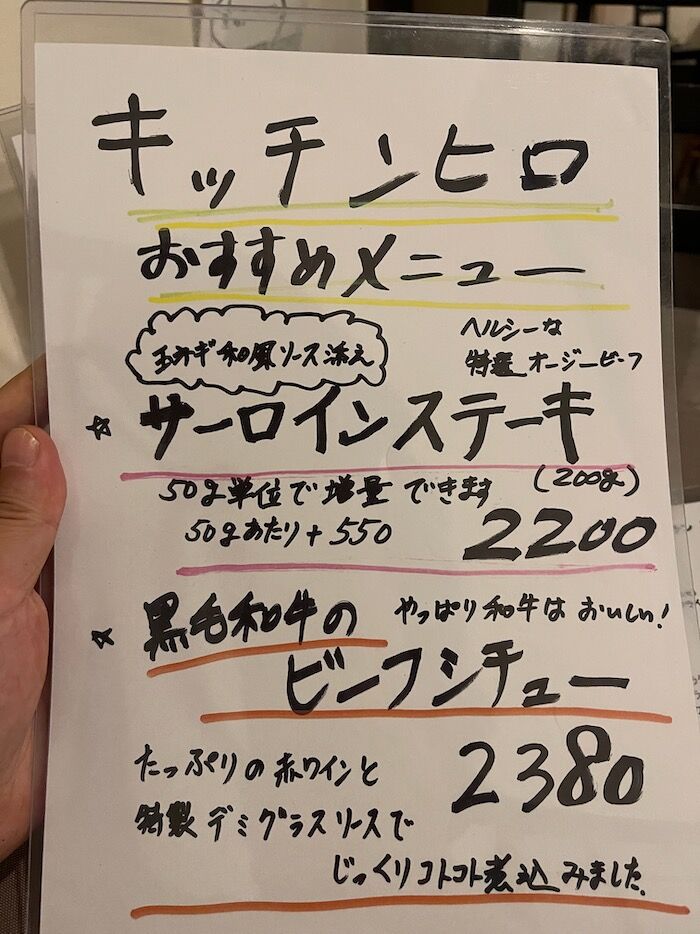 キッチンヒロ
おすすめメニュー
玉ネギ和風ソース添え
ヘルシーな
特選 オージービーフ
☆ サーロインステーキ
(200g)
50g単位で増量できます
50gあたり+550
2200
☆ 黒毛和牛の
やっぱり和牛はおいしい!
ビーフシチュー
たっぷりの赤ワインと
2380
特製デミグラスソースで
じっくりコトコト煮込みました。